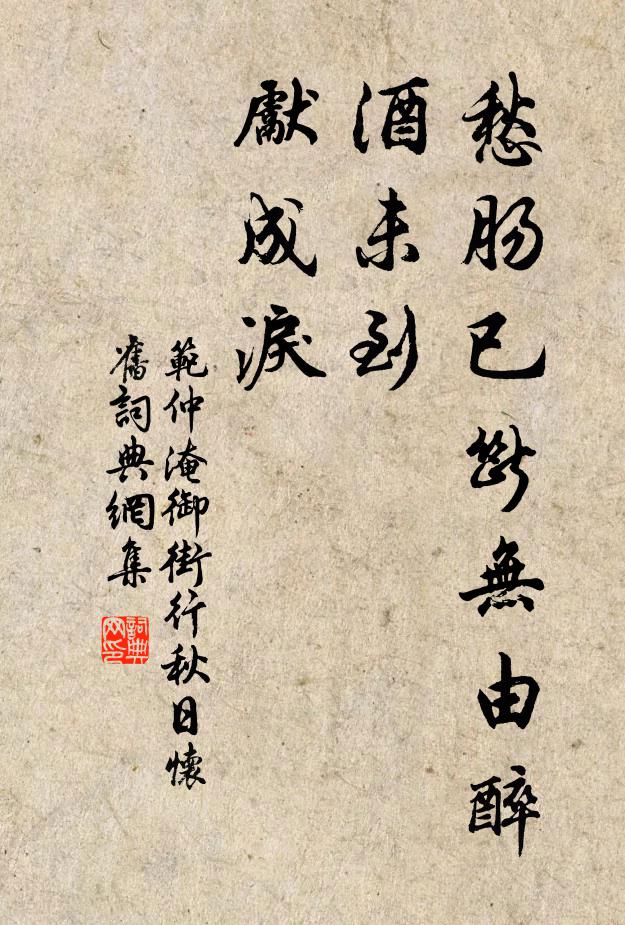 愁腸已斷無由醉
酒未到
獻成淚
範仲淹御街行秋日懷
舊詞典網集
詞典
网印